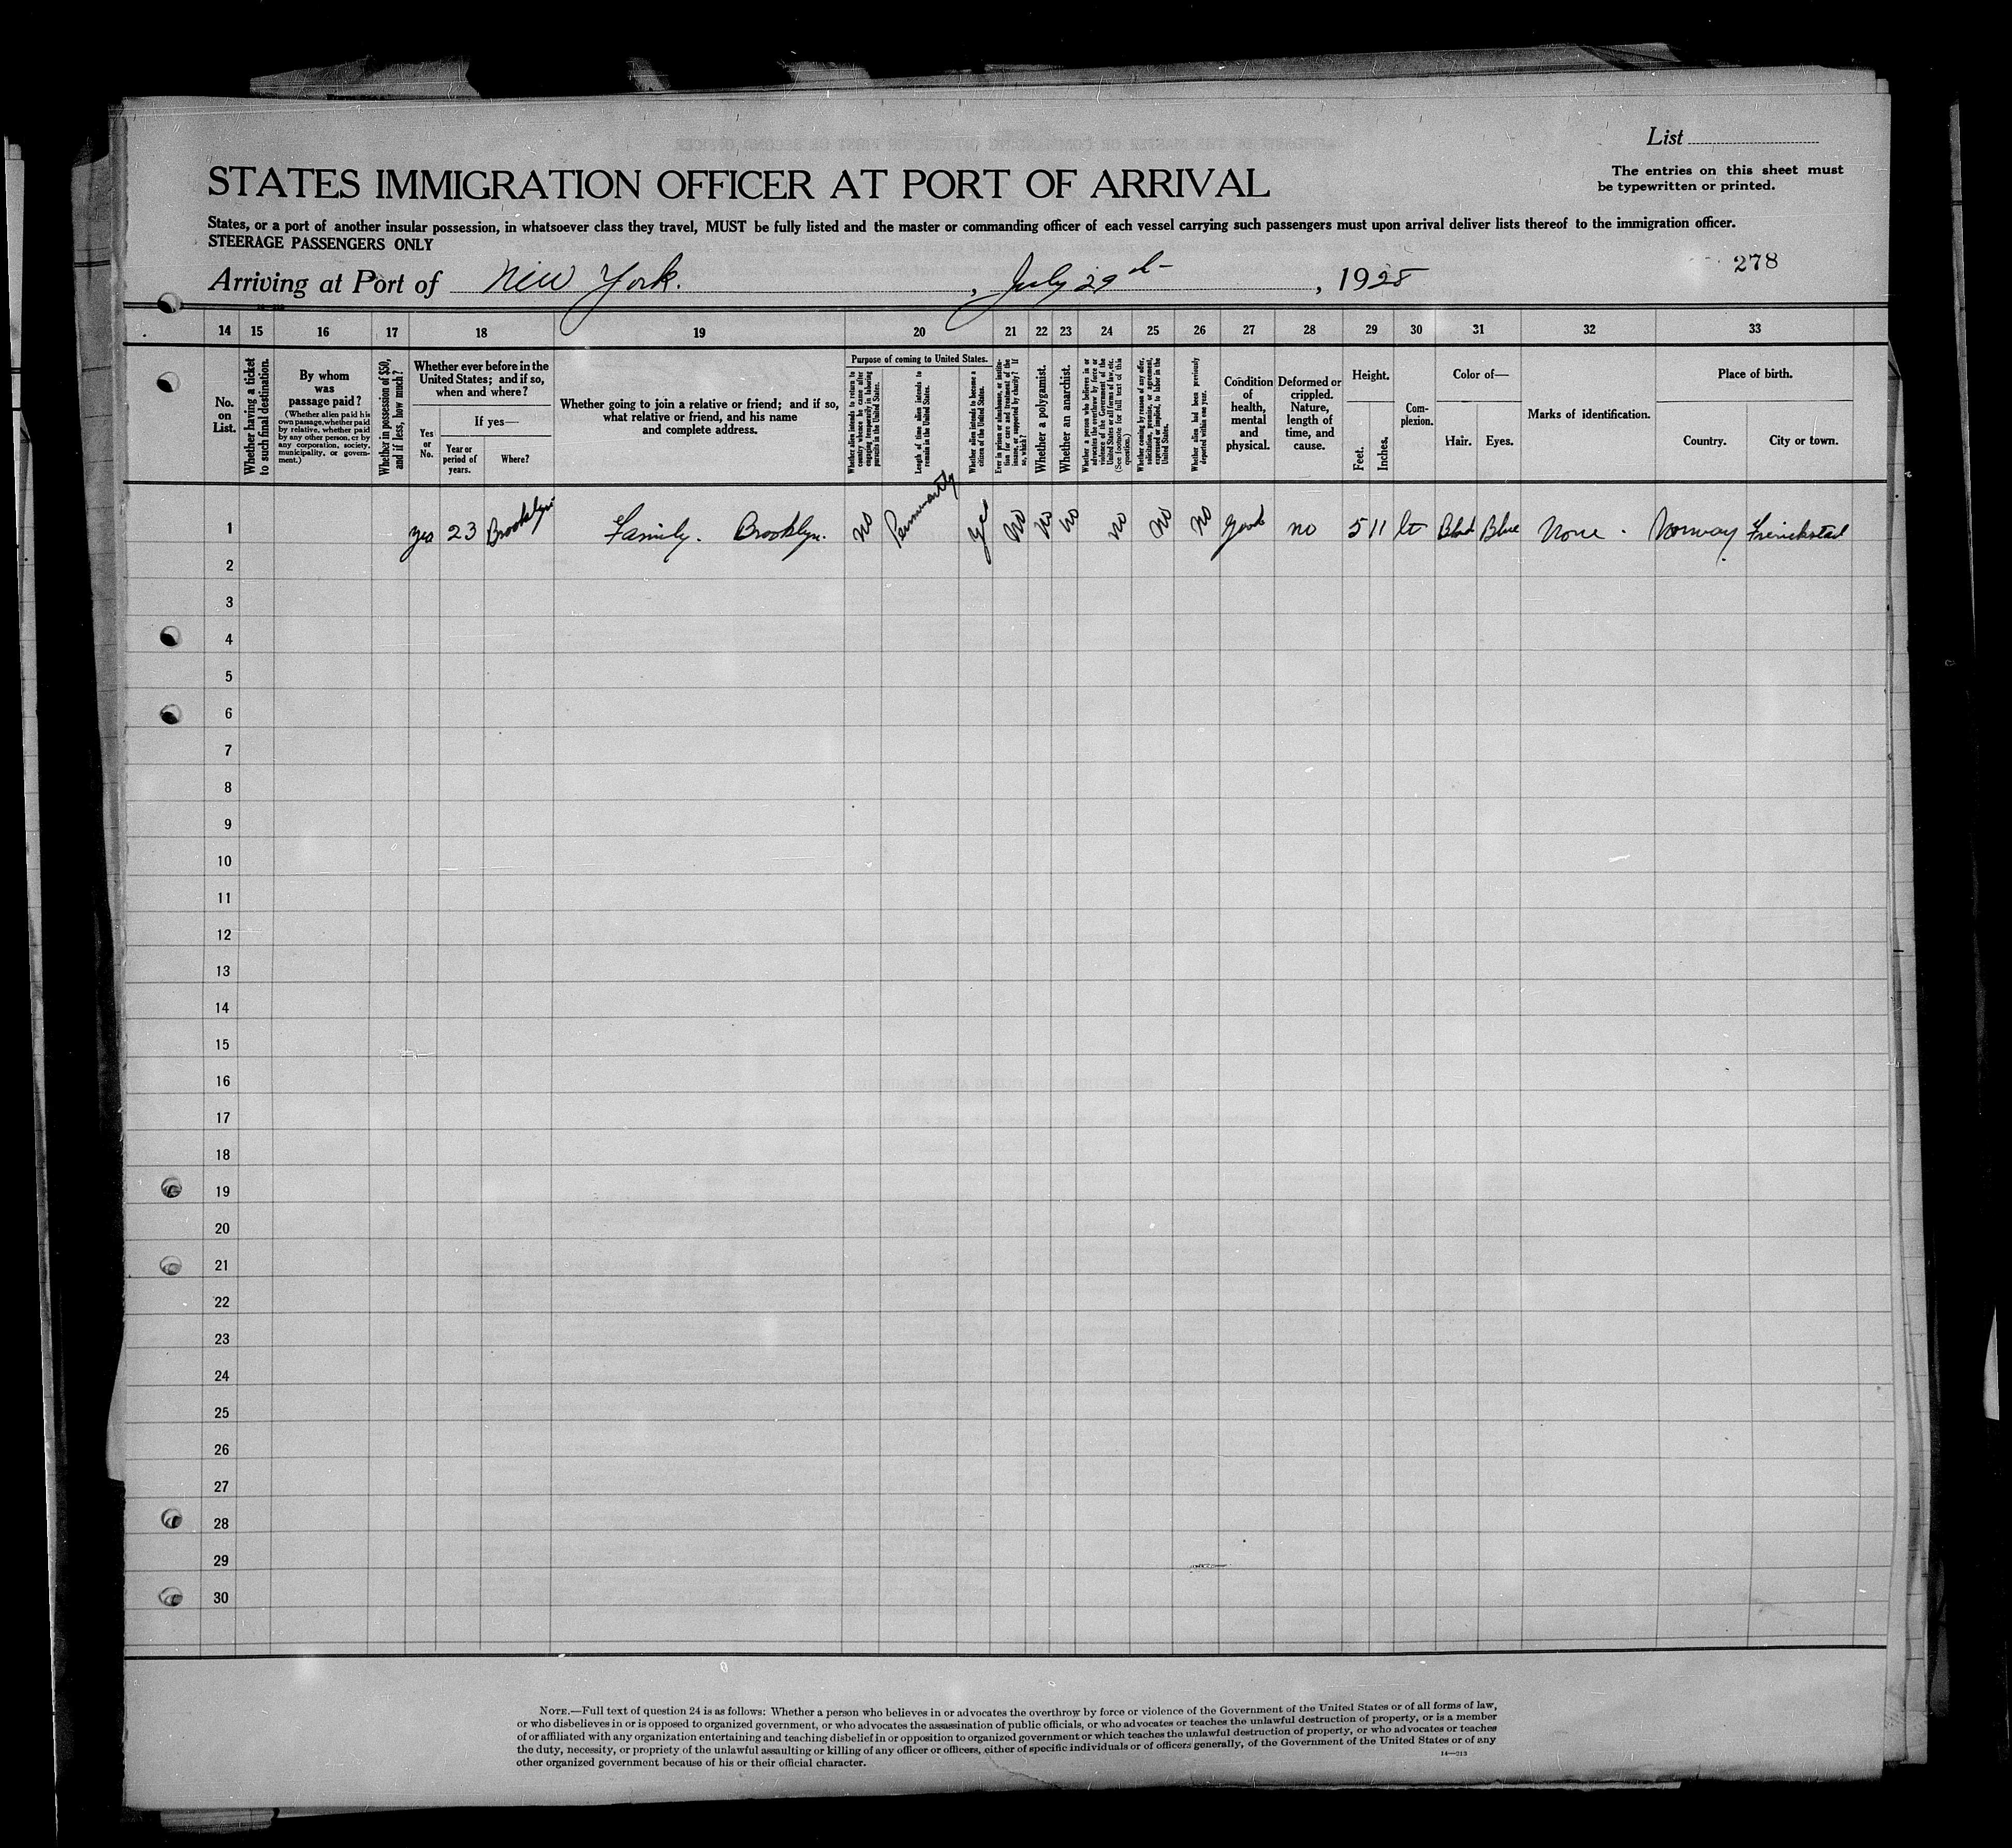 List
The entries on this sheet must
be typewritten or printed.
STATES IMMIGRATION OFFICER AT PORT OF ARRIVAL
States, or a port of another insular possession, in whatsoever class they travel, MUST be fully listed and the master or commanding officer of each vessel carrying such passengers must upon arrival deliver lists thereof to the immigration officer.
STEERAGE PASSENGERS ONLY
278
Arriving at Port of New York. , July 29th , 1928
14 15 16 17 18 19 20 21 22 23 24 25 26 27 28 29 30 31 32 33
No. on List.
Whether having a ticket to such final destination.
By whom was passage paid?
(Whether alien paid his own passage, whether paid by relative, whether paid by any other person, or by any corporation, society, municipality, or government.)
Whether in possession of $50, and if less, how much?
Whether ever before in the United States; and if so, when and where?
Yes or No.
If yes—
Year or period of years.
Where?
Whether going to join a relative or friend; and if so, what relative or friend, and his name and complete address.
Purpose of coming to United States.
Whether alien intends to return to country whence he came after engaging temporarily in laboring pursuits in the United States.
Length of time alien intends to remain in the United States.
Whether alien intends to become a citizen of the United States.
Ever in prison or almshouse, or institution for care and treatment of the insane, or supported by charity? If so, which?
Whether a polygamist.
Whether an anarchist.
Whether a person who believes in or advocates the overthrow by force or violence of the Government of the United States or all forms of law, etc. (See footnote for full text of this question.)
Whether coming by reason of any offer, solicitation, promise, or agreement, expressed or implied, to labor in the United States.
Whether alien had been previously deported within one year.
Condition of health, mental and physical.
Deformed or crippled. Nature, length of time, and cause.
Height.
Feet.
Inches.
Complexion.
Color of—
Hair.
Eyes.
Marks of identification.
Place of birth.
Country.
City or town.
1 yes 23 Brooklyn Family. Brooklyn. no Permanently yes no no no no no no good no 5 11 lt Bld Blue None. Norway
2
3
4
5
6
7
8
9
10
11
12
13
14
15
16
17
18
19
20
21
22
23
24
25
26
27
28
29
30
NOTE.—Full text of question 24 is as follows: Whether a person who believes in or advocates the overthrow by force or violence of the Government of the United States or of all forms of law,
or who disbelieves in or is opposed to organized government, or who advocates the assassination of public officials, or who advocates or teaches the unlawful destruction of property, or is a member
of or affiliated with any organization entertaining and teaching disbelief in or opposition to organized government or which teaches the unlawful destruction of property, or who advocates or teaches
the duty, necessity, or propriety of the unlawful assaulting or killing of any officer or officers, either of specific individuals or of officers generally, of the Government of the United States or of any
other organized government because of his or their official character.
14—313